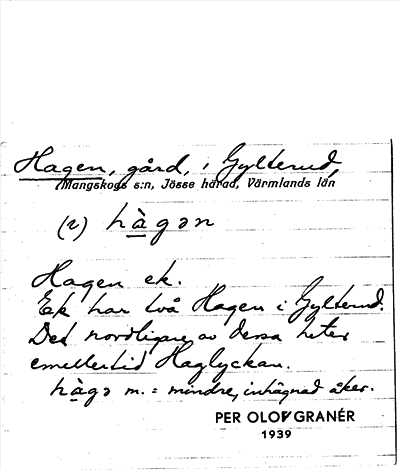 Hagen, gård, i Gylterud,
Mangskogs s:n, Jösse härad, Värmlands län
(r) hàgǝn
Hagen ek.
Ek har två Hagen i Gylterud.
Det nordligare av dessa heter
emellertid Haglyckan.
hàgǝ m. = mindre, inhägnad åker.
PER OLOF GRANÉR
1939